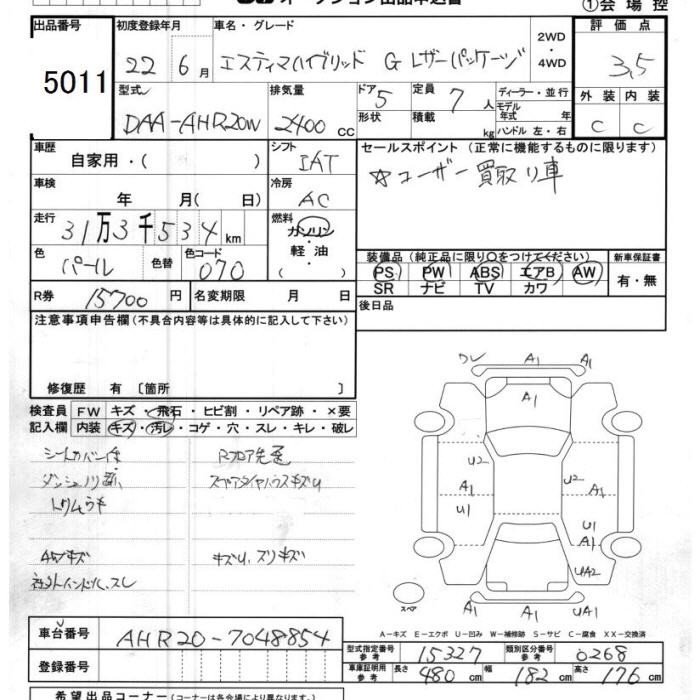 ①会場控
出品番号 初度登録年月 車名・グレード 評価点
5011 22 6月 エスティマハイブリッド G レザーパッケージ 2WD・4WD 3.5
型式 排気量 ドア 5 定員 7人 ディーラー・並行 外装 内装
DAA-AHR20W 2400cc 形状 積載 kg モデル年式 年 ハンドル 左・右 C C
車歴 自家用・( ) シフト IAT セールスポイント(正常に機能するものに限ります)
☆ユーザー買取り車
車検 年 月(日) 冷房 AC
走行 31万3千534km 燃料 ガソリン・軽油
色 パール 色替 色コード 070
装備品(純正品に限り○をつけてください) 新車保証書
PS PW ABS エアB AW 有・無
SR ナビ TV カワ
R券 15700円 名変期限 月 日 後日品
注意事項申告欄(不具合内容等は具体的に記入して下さい)
修復歴 有 [箇所 ]
検査員記入欄 FW キズ・飛石・ヒビ割・リペア跡・×要
内装 キズ・汚レ・コゲ・穴・スレ・キレ・破レ
AWキズ キズU、スリキズ
A1 A1
A1
U2 U2
A1 A1
U1 U1
A1 A1
UA2
A1 A1 UA1
スペア
A-キズ E-エクボ U-凹み W-補修跡 S-サビ C-腐食 XX-交換済
車台番号 AHR20-7048854
型式指定番号 参考 15327 類別区分番号 参考 0268
登録番号 車庫証明用 参考 長さ 480cm 幅 182cm 高さ 176cm
希望出品コーナー